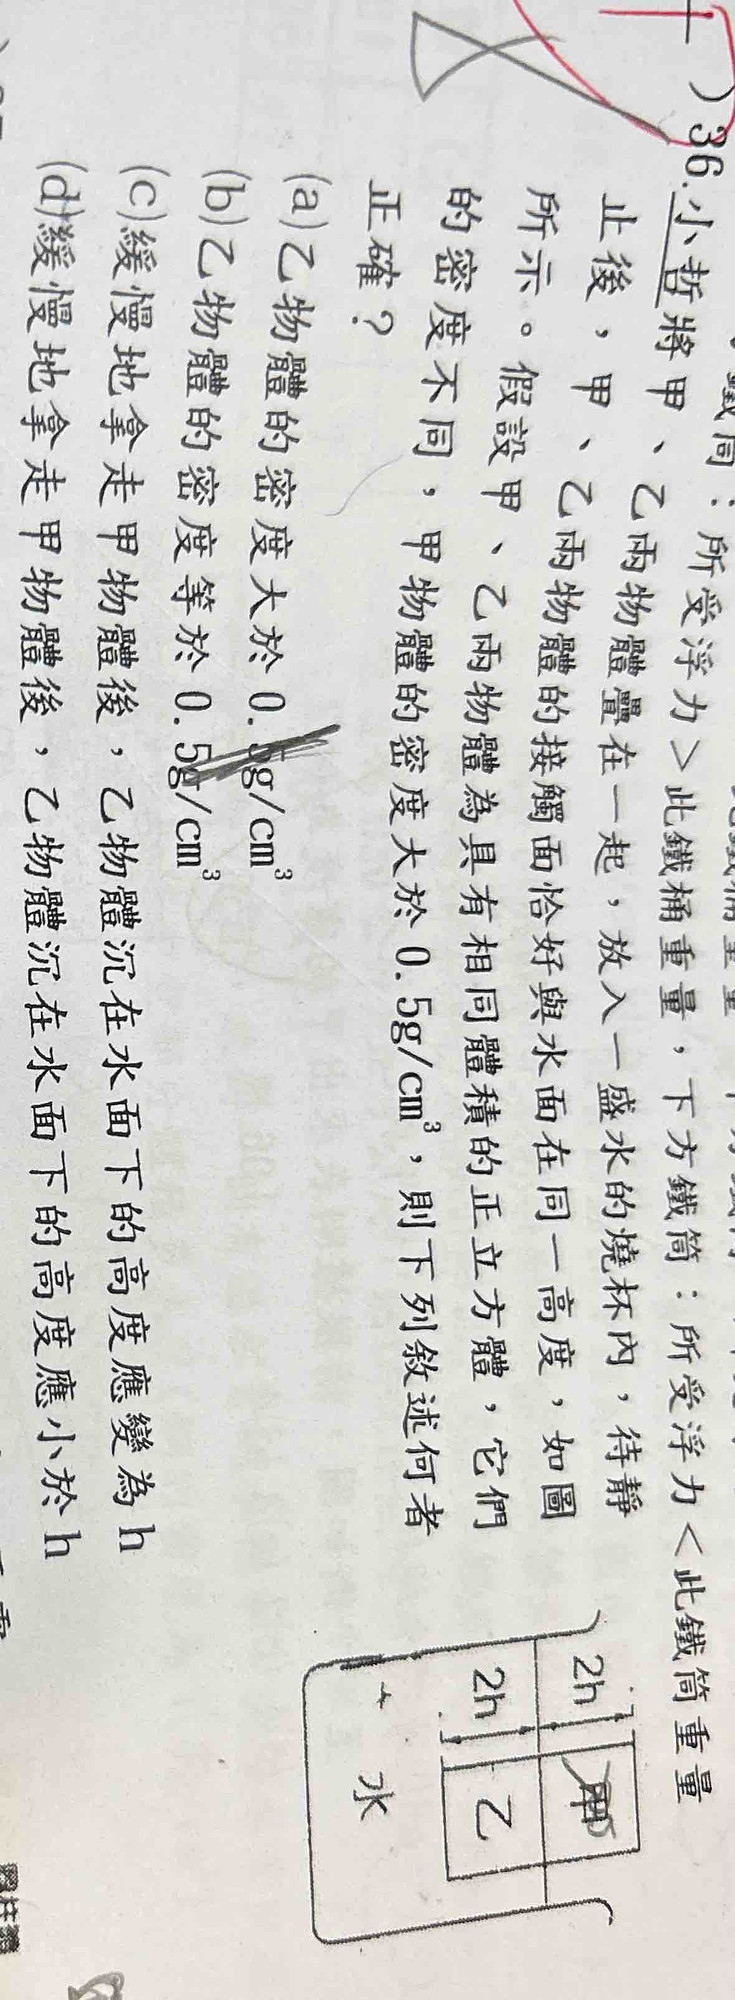 鐵筒：所受浮力＞此鐵桶重量，下方鐵筒：所受浮力＜此鐵筒重量
)36.小哲將甲、乙兩物體疊在一起，放入一盛水的燒杯內，待靜
止後，甲、乙兩物體的接觸面恰好與水面在同一高度，如圖
所示。假設甲、乙兩物體為具有相同體積的正立方體，它們
的密度不同，甲物體的密度大於0.5g/cm³，則下列敘述何者
正確？
(a)乙物體的密度大於0.5g/cm³
(b)乙物體的密度等於0.5g/cm³
(c)緩慢地拿走甲物體後，乙物體沉在水面下的高度應變為h
(d)緩慢地拿走甲物體後，乙物體沉在水面下的高度應小於h
2h
甲
2h
乙
水